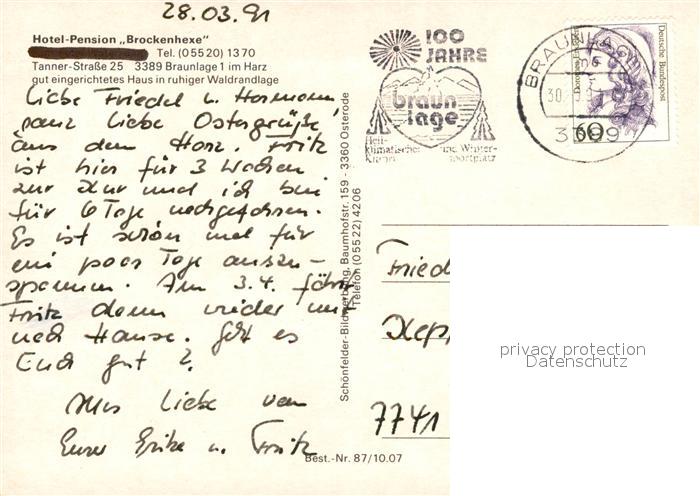 28.03.91
Hotel-Pension „Brockenhexe"
Tel. (05520) 1370
Tanner-Straße 25 3389 Braunlage 1 im Harz
gut eingerichtetes Haus in ruhiger Waldrandlage
Liebe Friedel u. Hermann,
ganz liebe Ostergrüße
aus dem Harz. Fritz
ist hier für 3 Wochen
zur Kur und ich bin
für 6 Tage nachgefahren.
Es ist schön mal für
ein paar Tage auszu-
spannen. Am 3.4. fährt
Fritz dann wieder mit
nach Hause. Geht es
Euch gut?
Alles Liebe von
Eurer Erika u. Fritz
Best.-Nr. 87/10.07
Schönfelder-Bildwerbung, Baumhofstr. 159 - 3360 Osterode
Telefon (05522) 4206
100
JAHRE
braun
lage
Heil-
klimatischer und Winter-
sportplatz
BRAUNLAGE
30.
3389
Deutsche Bundespost
60
Friedel
7741
privacy protection
Datenschutz